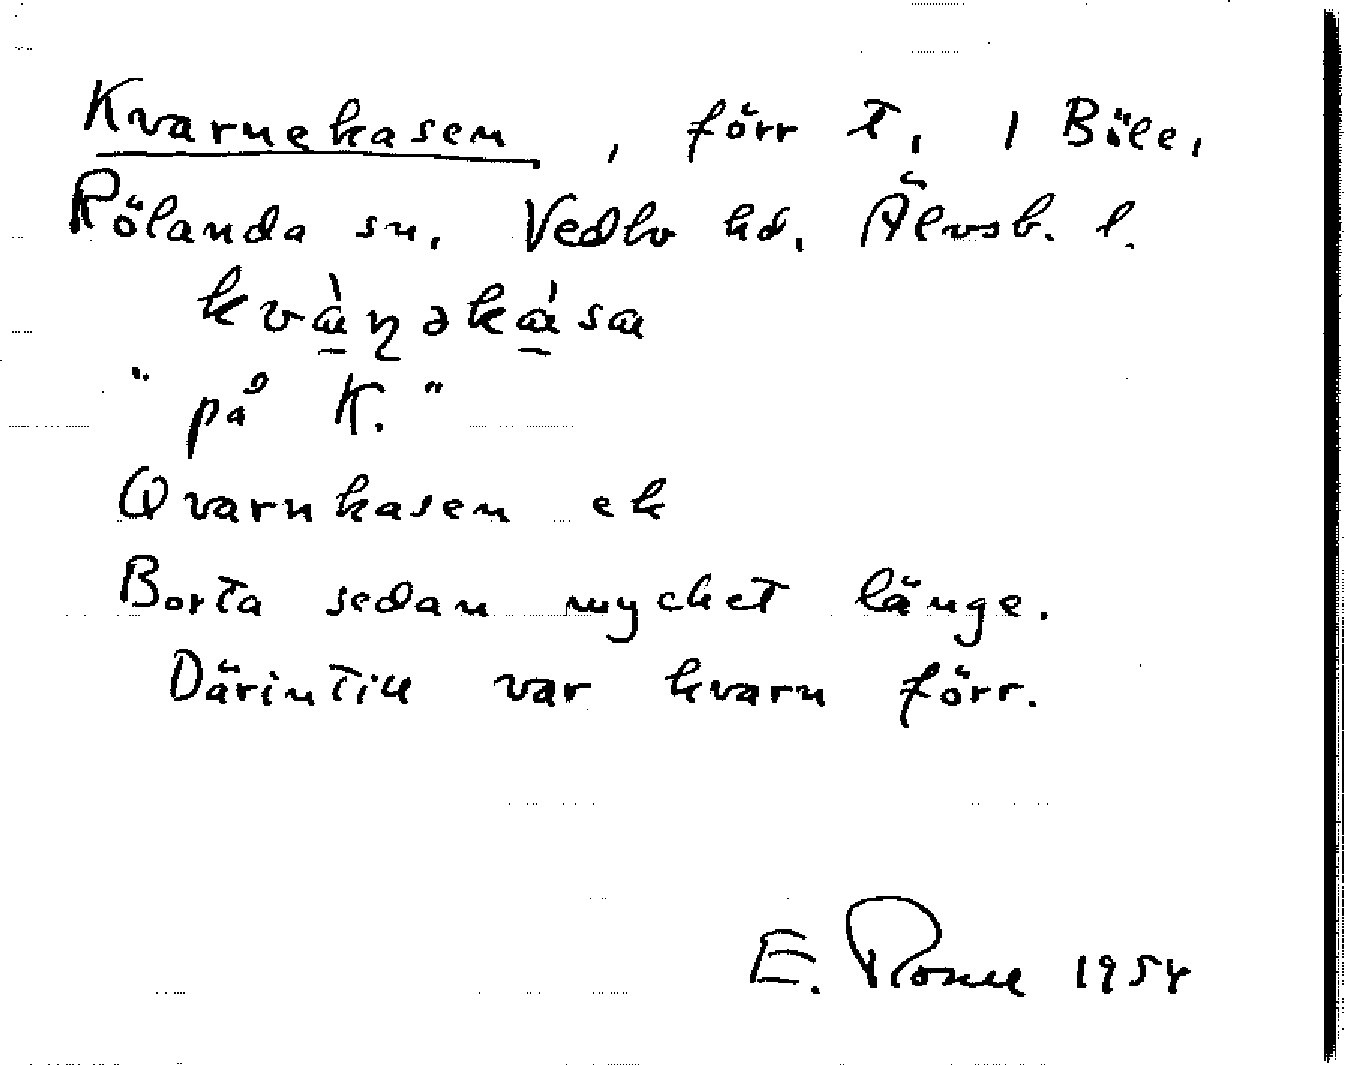 Kvarnekasen, förr t, 1 Böle,
Rölanda sn, Vedbo hd, Älvsb. l.
kvàɳəkása
"på K."
Qvarnkasen ek
Borta sedan mycket länge.
Därintill var kvarn förr.
E. 1954